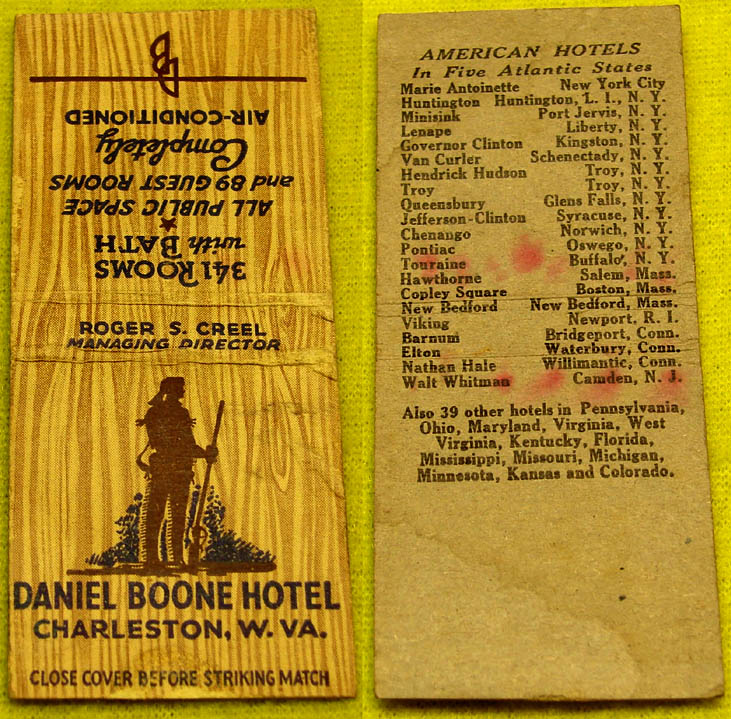 DB
341 ROOMS
with BATH
ALL PUBLIC SPACE
and 89 GUEST ROOMS
Completely
AIR-CONDITIONED
ROGER S. CREEL
MANAGING DIRECTOR
DANIEL BOONE HOTEL
CHARLESTON, W. VA.
CLOSE COVER BEFORE STRIKING MATCH
AMERICAN HOTELS
In Five Atlantic States
Marie Antoinette New York City
Huntington Huntington, L. I., N. Y.
Minisink Port Jervis, N. Y.
Lenape Liberty, N. Y.
Governor Clinton Kingston, N. Y.
Van Curler Schenectady, N. Y.
Hendrick Hudson Troy, N. Y.
Troy Troy, N. Y.
Queensbury Glens Falls, N. Y.
Jefferson-Clinton Syracuse, N. Y.
Chenango Norwich, N. Y.
Pontiac Oswego, N. Y.
Touraine Buffalo, N. Y.
Hawthorne Salem, Mass.
Copley Square Boston, Mass.
New Bedford New Bedford, Mass.
Viking Newport, R. I.
Barnum Bridgeport, Conn.
Elton Waterbury, Conn.
Nathan Hale Willimantic, Conn.
Walt Whitman Camden, N. J.
Also 39 other hotels in Pennsylvania,
Ohio, Maryland, Virginia, West
Virginia, Kentucky, Florida,
Mississippi, Missouri, Michigan,
Minnesota, Kansas and Colorado.